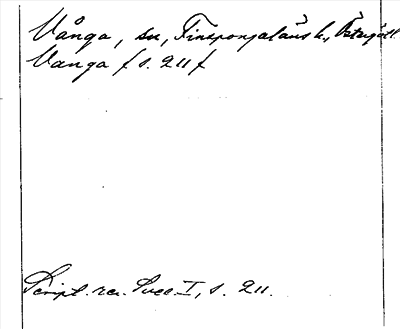 Vånga, sn, Finspongaläns h., Östergötl.
Vanga f s. 211 f
Script. rer. Suec. I, s. 211.